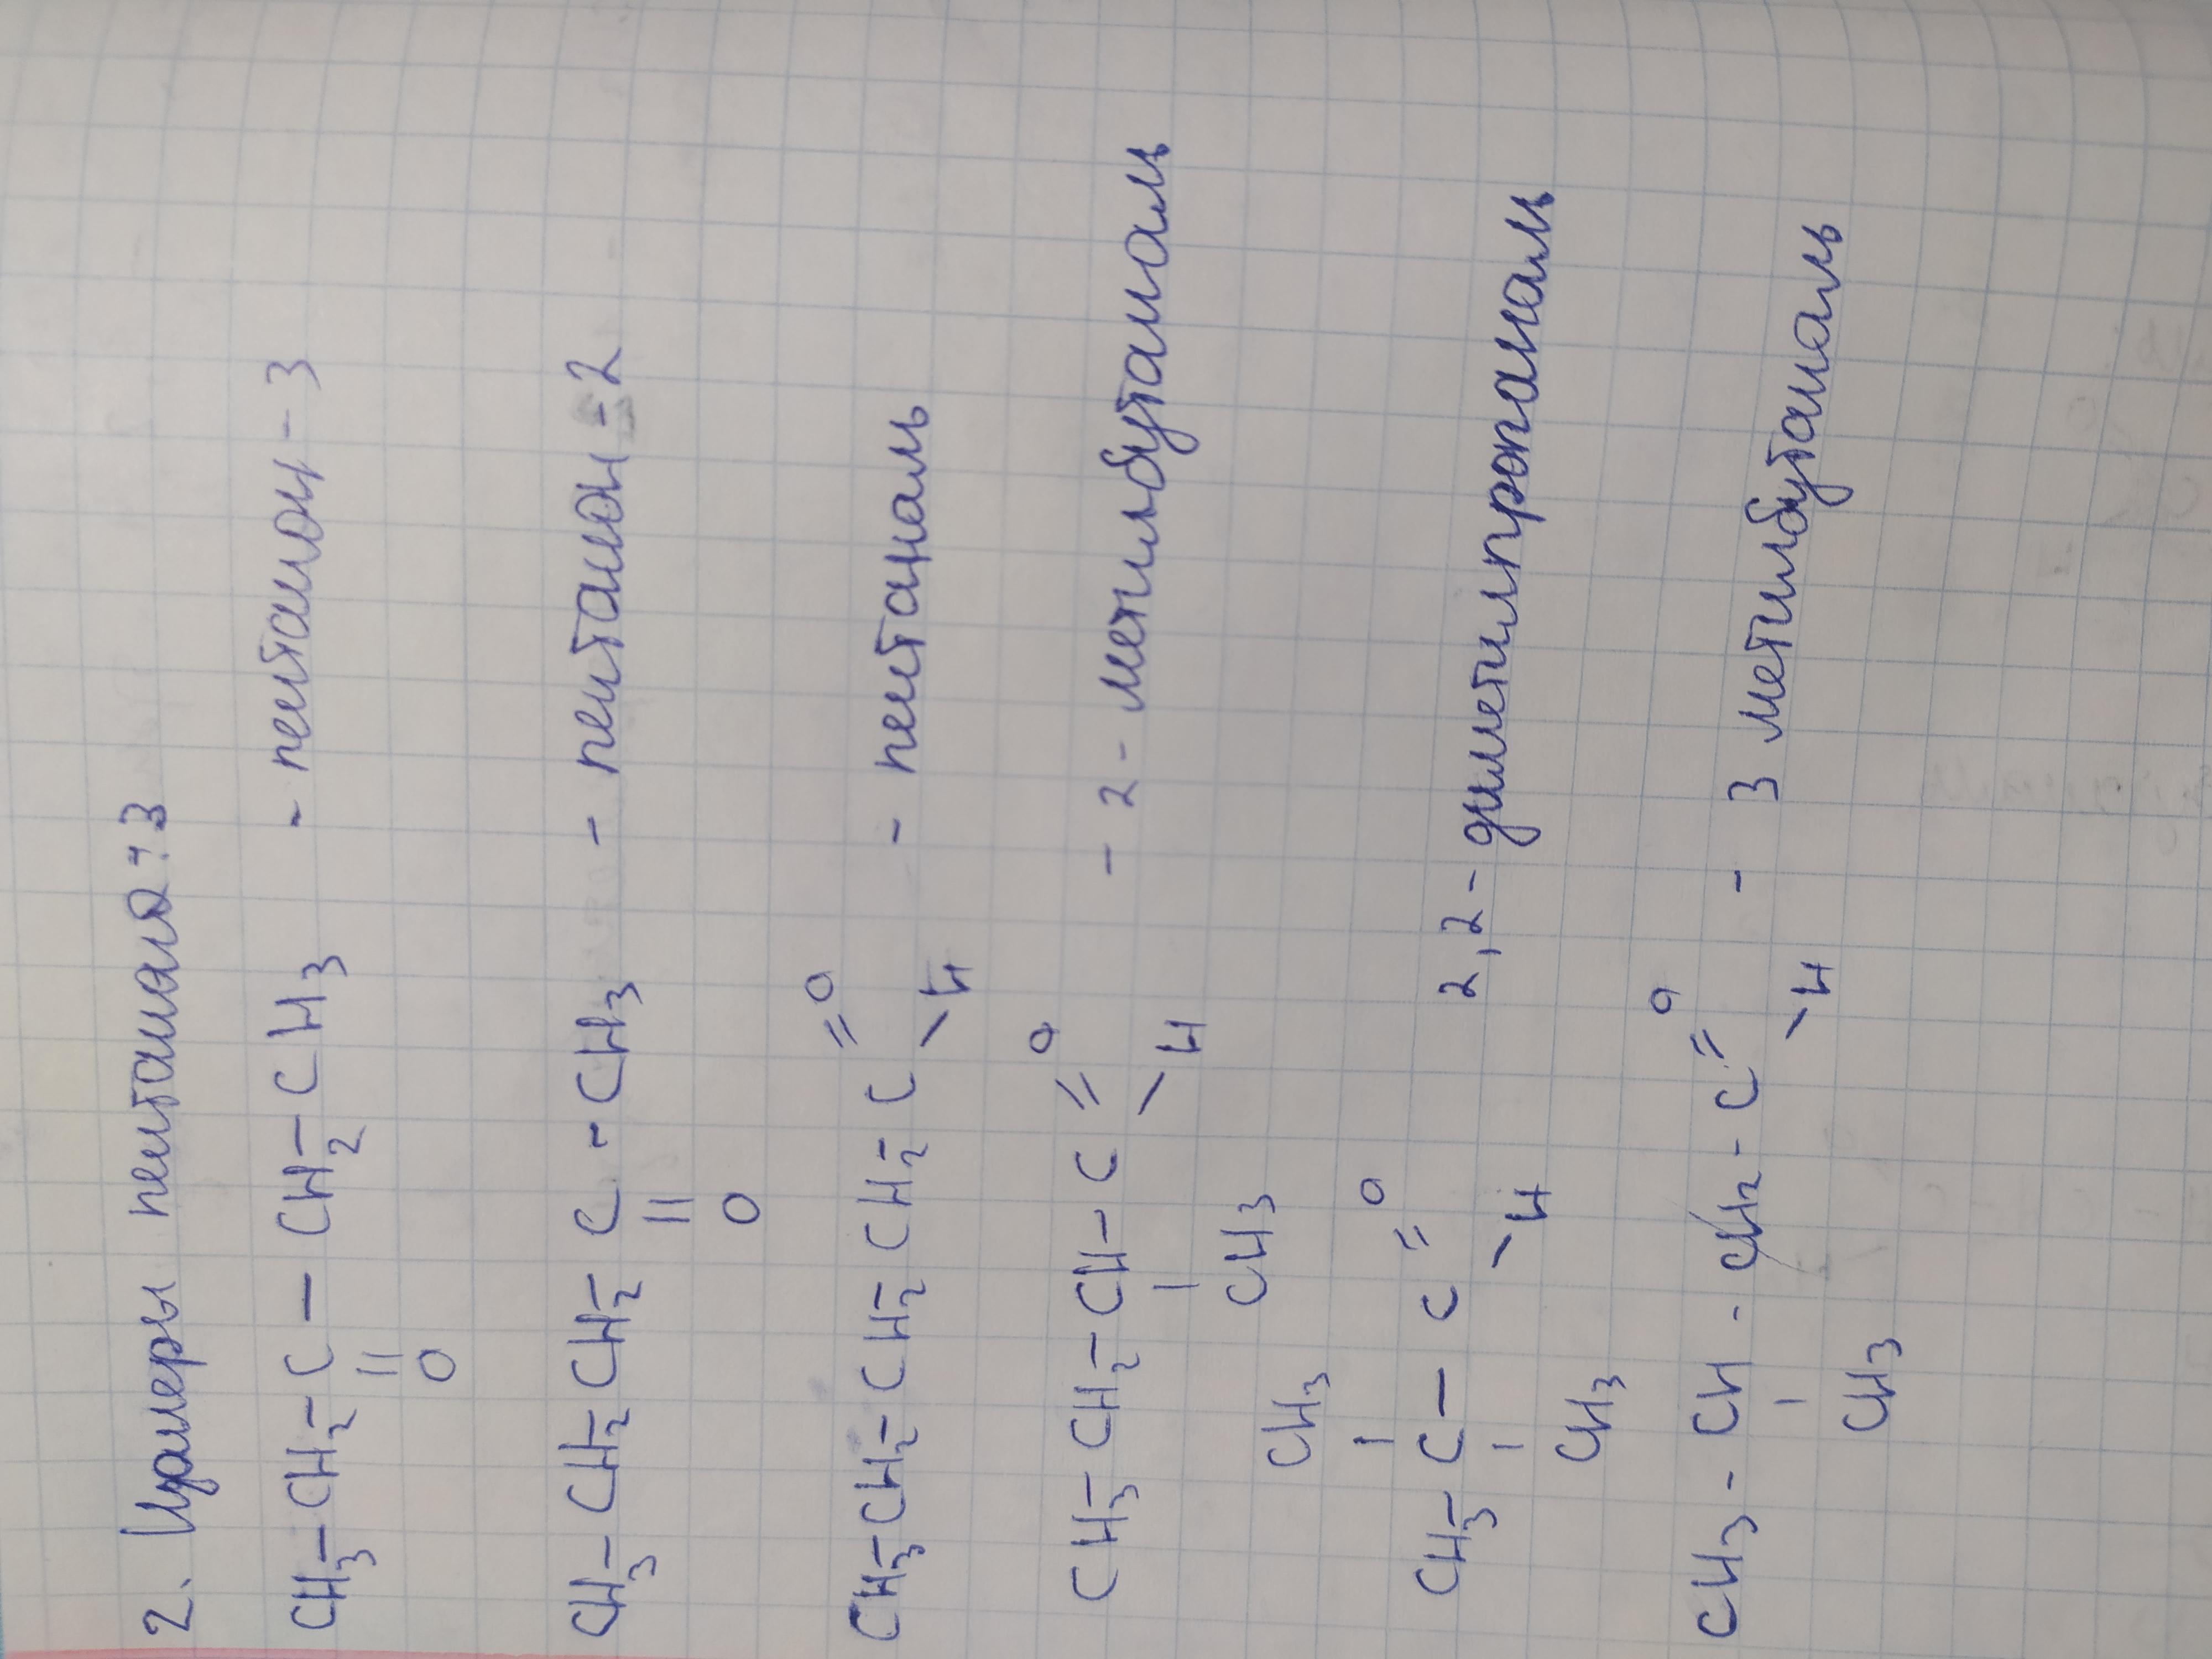 2. Изомеры пентанона-3
CH3-CH2-C-CH2-CH3 - пентанон-3
||
O
CH3-CH2-CH2-C-CH3 - пентанон-2
||
O
CH3-CH2-CH2-CH2-C=O - пентаналь
\H
CH3-CH2-CH-C=O - 2-метилбутаналь
| \H
CH3
CH3
|
CH3-C-C=O 2,2-диметилпропаналь
| \H
CH3
CH3-CH-CH2-C=O - 3 метилбутаналь
| \H
CH3